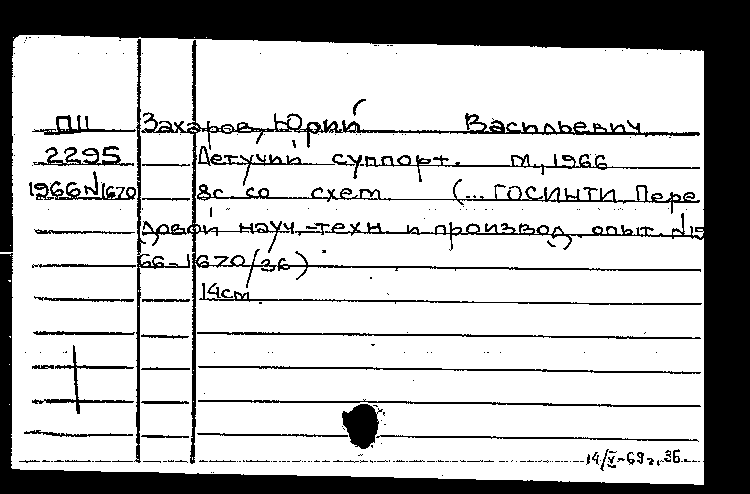 ПII Захаров, Юрий Васильевич
2295 Летучий суппорт. М., 1966
1966 N 1670 8с со схем (... ГОСИНТИ. Пере
довой науч.-техн. и производ. опыт. N 19
66-1670/36)
14см
14/V-69г. 36.